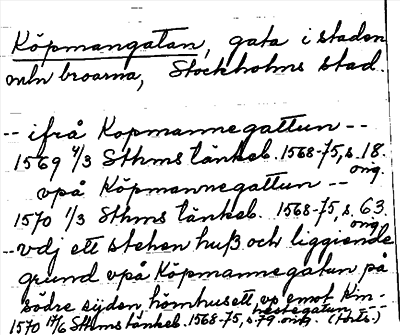 Köpmangatan, gata i staden
mln broarna, Stockholms stad.
-- ifrå Kopmannegattun --
1569 4/3 Sthms tänkeb. 1568-75, s. 18.
orig.
vpå Köpmannegattun --
1570 1/3 Sthms tänkeb. 1568-75, s. 63.
orig.
-- vdj ett stehen huß och liggiende
grund vpå Köpmannegatun på
södre sijden, hörnhusett, vp emot Kin-
stegatun --
1570 17/6 Sthms tänkeb. 1568-75, s. 79. orig. (Forts.)